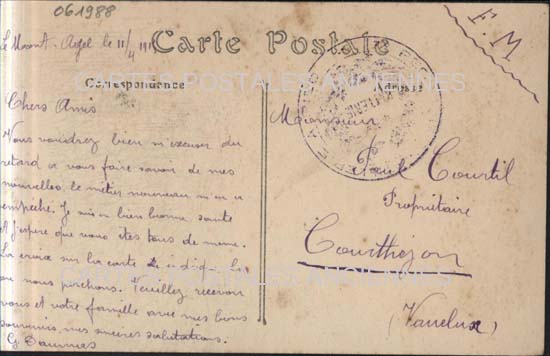 061988
Le Mont-Agel le 11/4 191
Carte Postale
F.M
CARTES POSTALES ANCIENNES
Correspondance
Adresse
Chers Amis
Monsieur
Vous voudrez bien m'excuser du
retard a vous faire savoir de mes
nouvelles, le métier nouveau m'en a
empeché. Je suis en bien bonne santé
et j'espère que vous êtes tous de meme.
La croix sur la carte indique
ou nous perchons. Veuillez recevoir
vous et votre famille avec mes bons
souvenirs, mes sincères salutations.
G. Daumas
Paul Courtil
Propriétaire
Courthezon
(Vaucluse)
CARTES POSTALES ANCIENNES